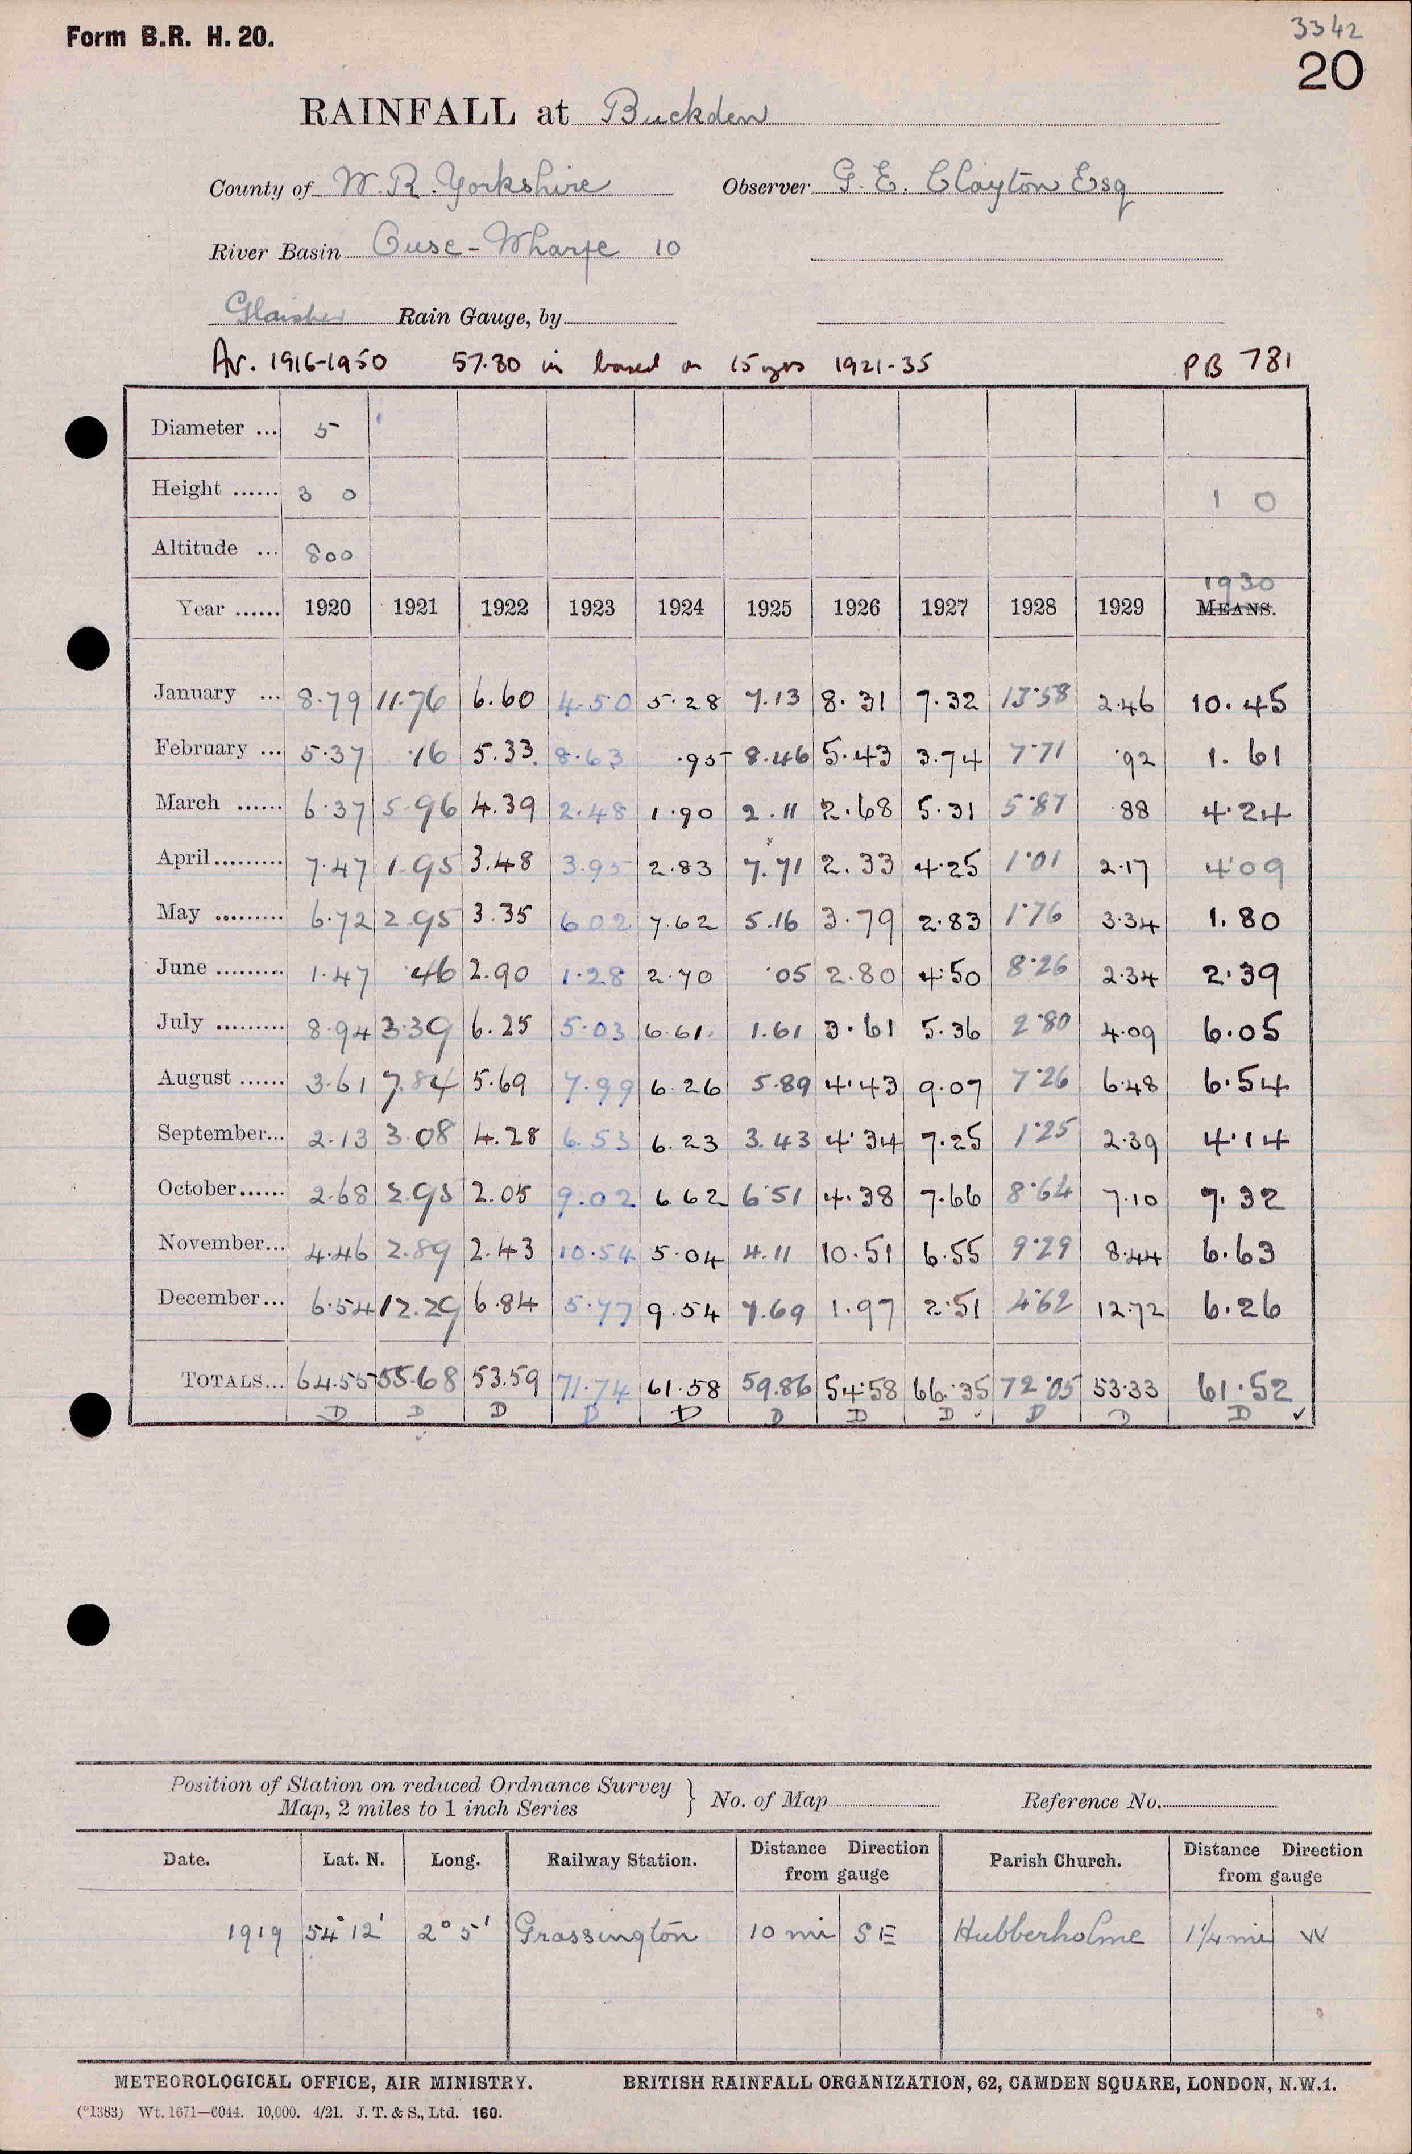 Form B.R. H. 20.
3342
20
RAINFALL at Buckden
County of W. R. Yorkshire Observer G. E. Clayton Esq
River Basin Ouse - Wharfe 10
Glaisher Rain Gauge, by
Av. 1916-1950 57.30 in based on 15 yrs 1921-35 PB 781
Diameter ... 5
Height ...... 3 0 1 0
Altitude ... 800
1930
Year ...... 1920 1921 1922 1923 1924 1925 1926 1927 1928 1929 MEANS.
January ... 8.79 11.76 6.60 4.50 5.28 7.13 8.31 7.32 13.58 2.46 10.45
February ... 5.37 .16 5.33 8.63 .95 8.46 5.43 3.74 7.71 .92 1.61
March ...... 6.37 5.96 4.39 2.48 1.90 2.11 2.68 5.31 5.87 .88 4.24
April ......... 7.47 1.95 3.48 3.95 2.83 7.71 2.33 4.25 1.01 2.17 4.09
May ......... 6.72 2.95 3.35 6.02 7.62 5.16 3.79 2.83 1.76 3.34 1.80
June ......... 1.47 .46 2.90 1.28 2.70 .05 2.80 4.50 8.26 2.34 2.39
July ......... 8.94 3.39 6.25 5.03 6.61 1.61 3.61 5.36 2.80 4.09 6.05
August ...... 3.61 7.84 5.69 7.99 6.26 5.89 4.43 9.07 7.26 6.48 6.54
September... 2.13 3.08 4.28 6.53 6.23 3.43 4.34 7.25 1.25 2.39 4.14
October...... 2.68 2.95 2.05 9.02 6.62 6.51 4.38 7.66 8.64 7.10 7.32
November... 4.46 2.89 2.43 10.54 5.04 4.11 10.51 6.55 9.29 8.44 6.63
December... 6.54 12.29 6.84 5.77 9.54 7.69 1.97 2.51 4.62 12.72 6.26
TOTALS... 64.55 55.68 53.59 71.74 61.58 59.86 54.58 66.35 72.05 53.33 61.52
D D D D D D D D D D D ✓
Position of Station on reduced Ordnance Survey
Map, 2 miles to 1 inch Series } No. of Map Reference No.
Date. Lat. N. Long. Railway Station. Distance Direction from gauge Parish Church. Distance Direction from gauge
1919 54° 12' 2° 5' Grassington 10 mi S E Hubberholme 1¼ mi W
METEOROLOGICAL OFFICE, AIR MINISTRY. BRITISH RAINFALL ORGANIZATION, 62, CAMDEN SQUARE, LONDON, N.W.1.
(*1383) Wt. 1671—6044. 10,000. 4/21. J. T. & S., Ltd. 160.